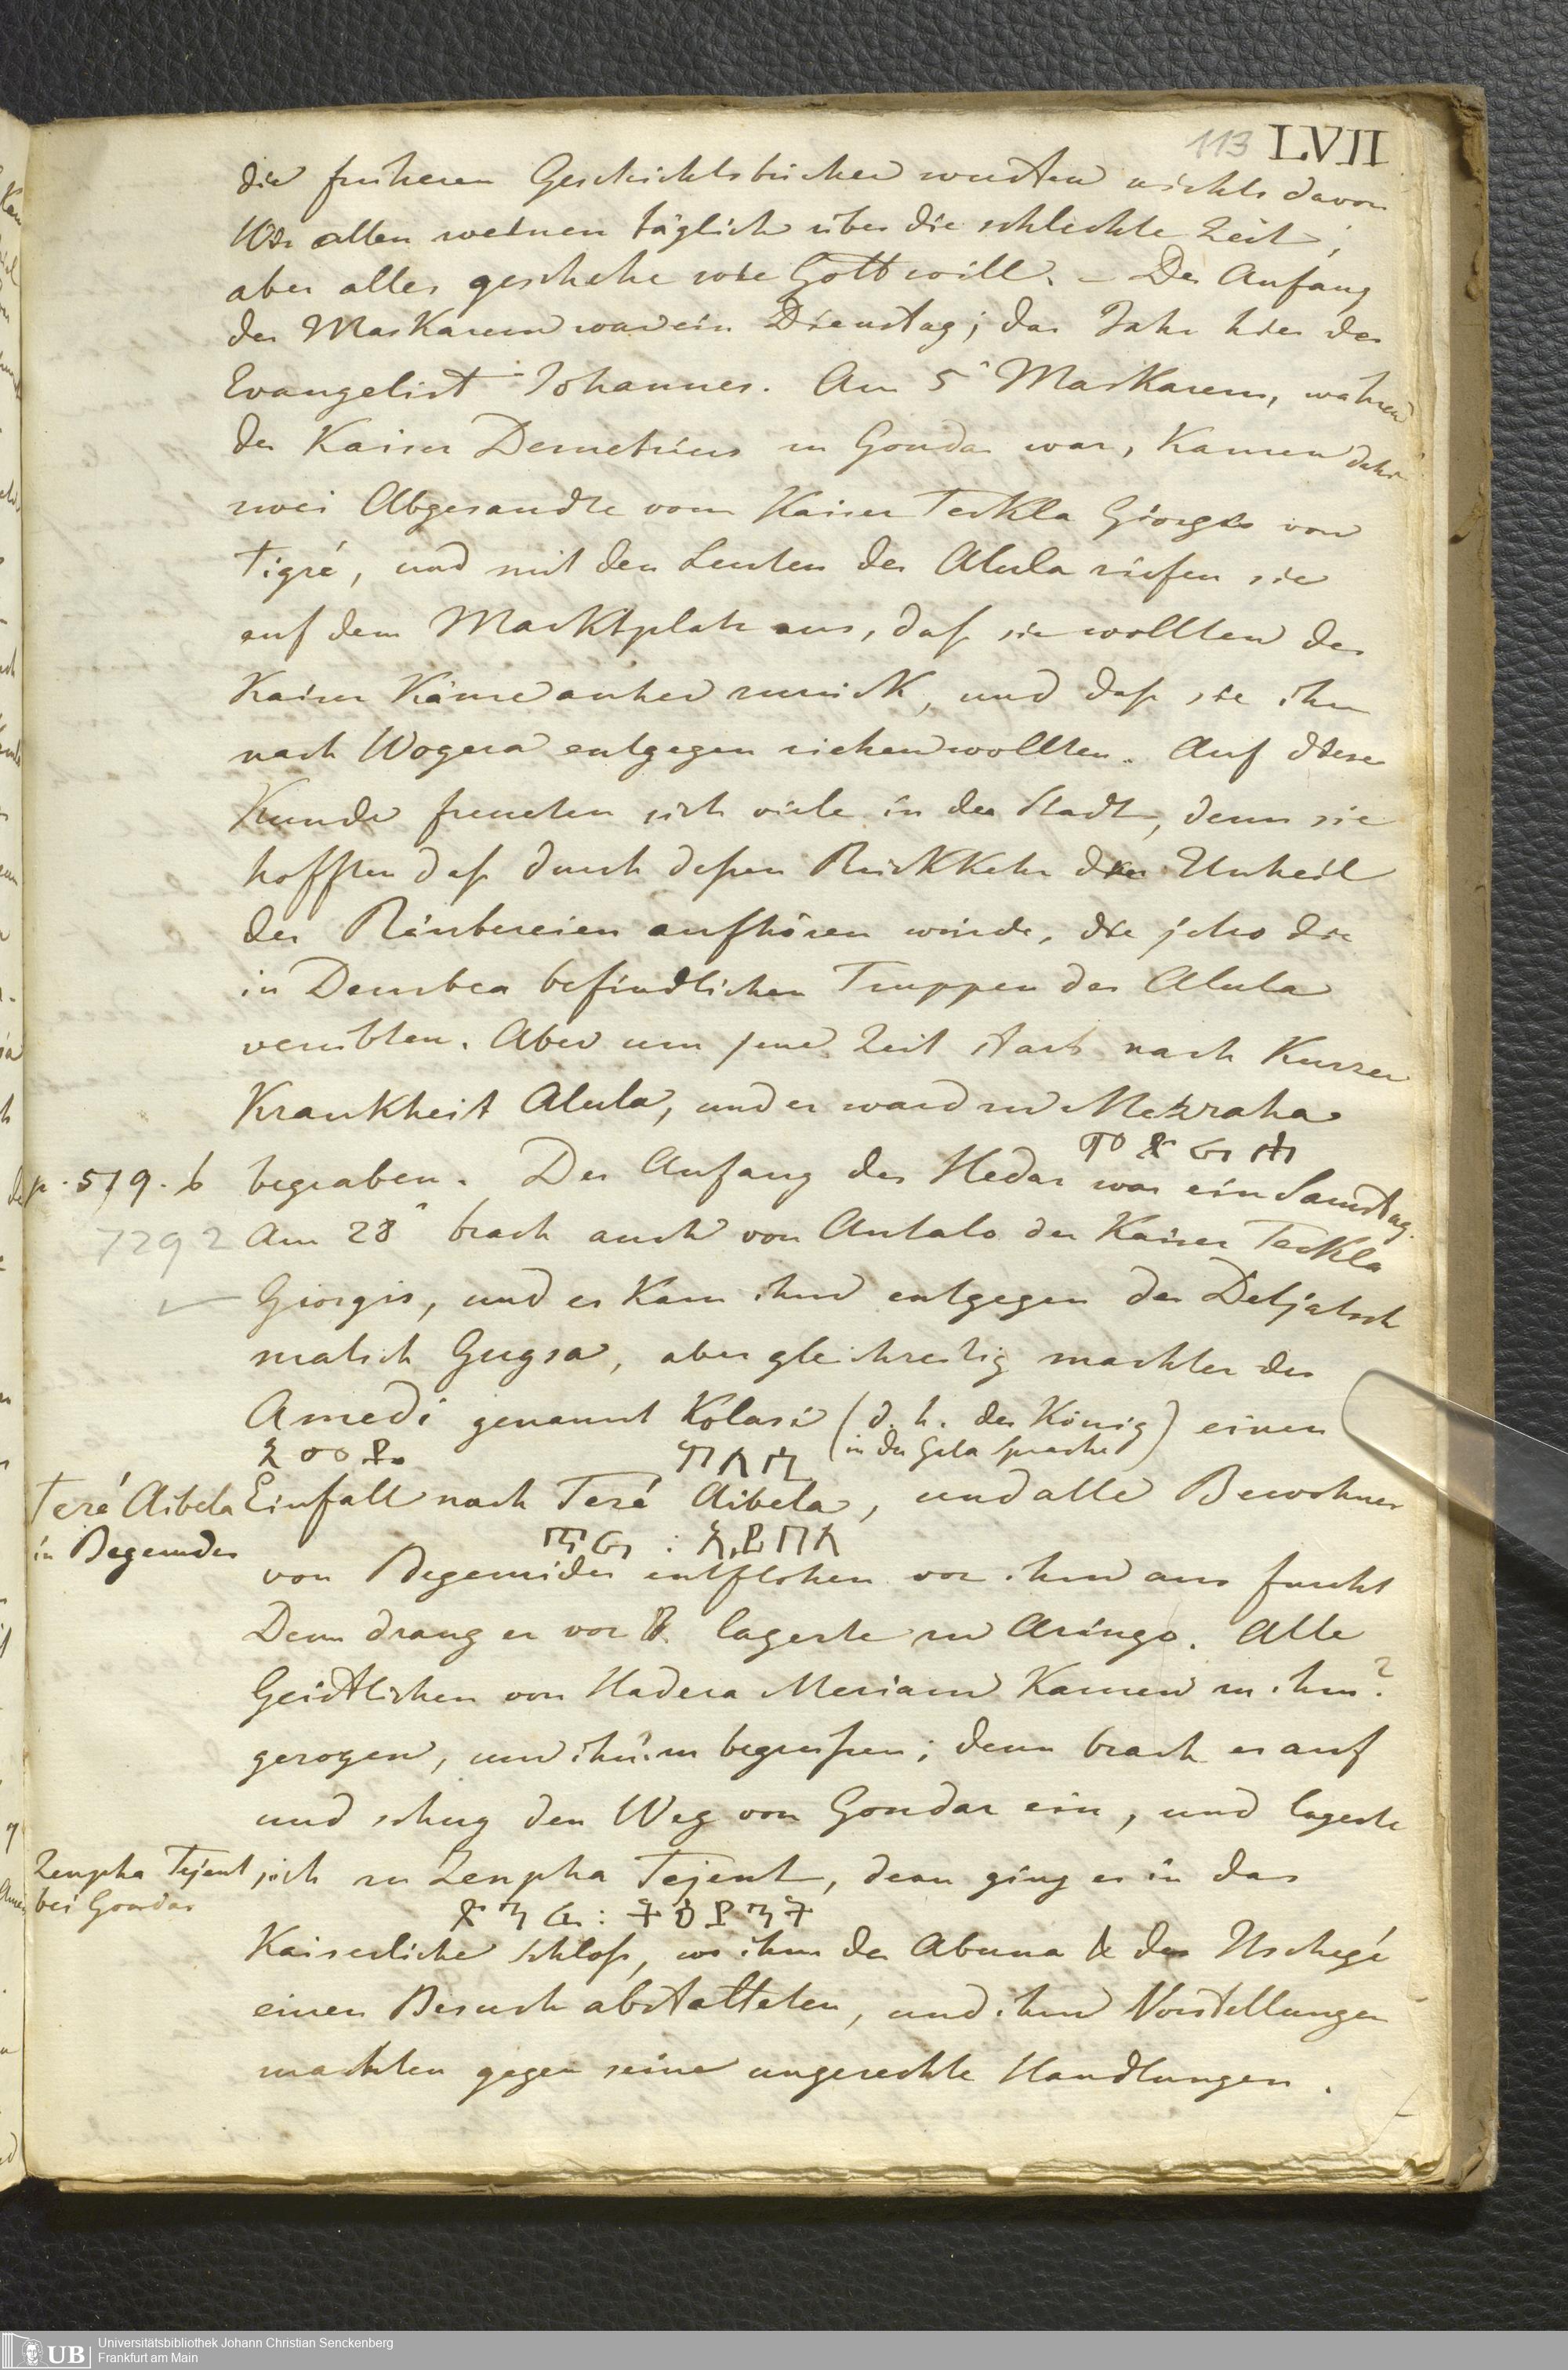 113 LVII
die früheren Geschichtsbücher wusten nichts davon
Wir allen weinen täglich über die schlechte Zeit;
aber alles geschehe wie Gott will. – Der Anfang
des Maskarem war ein Dienstag; das Jahr hies des
Evangelist Johannes. Am 5ᵗ Maskarem, während
der Kaiser Demetrius in Gondar war, Kamen dahin
zwei Abgesandte vom Kaiser Teckla Giorgis von
Tigré, und mit den Leuten des Alula riefen sie
auf dem Marktplatz aus, daß sie wollten der
Kaiser Käme anher zurück, und daß sie ihm
nach Wogera entgegen ziehen wollten. Auf diese
Kunde freueten sich viele in der Stadt, denn sie
hofften daß durch deßen Rückkehr das Unheil
der Räubereien aufhören würde, die jetzo die
in Dembea befindlichen Truppen des Alula
verübten. Aber um jene Zeit starb nach Kurzer
Krankheit Alula, und er ward zu Mezraha
መጽራሐ
p. 519. b begraben. Der Anfang des Hedar war ein Samstag.
7292 Am 28ᵗ brach auch von Antalo der Kaiser Teckla
Giorgis, und es Kam ihm entgegen der Detjatsch
matsch Gugsa, aber gleichzeitig machte der
Amedi genannt Kolasi (d. h. der König) einen
(in der Gala Sprache)
Teré Aibela Einfall nach Teré Aibela, und alle Bewohner
in Begemder
von Begemider entflohen vor ihm aus furcht
Denn drang er vor & lagerte zu Aringo. Alle
Geistlichen von Hadera Meriam Kamen zu ihm?
gezogen, um ihn zu begrüßen; denn brach er auf
und schug den Weg von Gondar ein, und lagerte
Zenpha Tejent sich zu Zenpha Tejent, dean ging er in das
bei Gondar
Kaiserliche Schloß, wo ihm der Abuna & der Itschegé
einen Besuch abstatteten, und ihm Vorstellungen
machten gegen seine ungerechte Handlungen.
UB Universitätsbibliothek Johann Christian Senckenberg
Frankfurt am Main